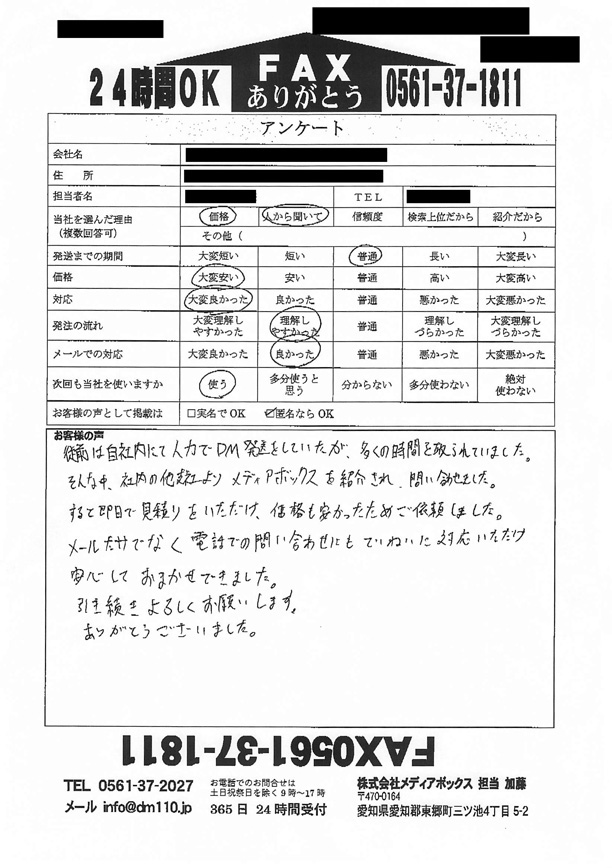 24時間OK
FAX
ありがとう
0561-37-1811
アンケート
会社名
住 所
担当者名 TEL
当社を選んだ理由 価格 人から聞いて 信頼度 検索上位だから 紹介だから
(複数回答可) その他 ( )
発送までの期間 大変短い 短い 普通 長い 大変長い
価格 大変安い 安い 普通 高い 大変高い
対応 大変良かった 良かった 普通 悪かった 大変悪かった
発注の流れ 大変理解しやすかった 理解しやすかった 普通 理解しづらかった 大変理解しづらかった
メールでの対応 大変良かった 良かった 普通 悪かった 大変悪かった
次回も当社を使いますか 使う 多分使うと思う 分からない 多分使わない 絶対使わない
お客様の声として掲載は □実名でOK ☑匿名ならOK
お客様の声
従前は自社内にて人力でDM発送をしていたが、多くの時間を取られていました。
そんな中、社内の他部署より メディアボックスを紹介され、問い合せました。
すると即日で見積りをいただけ、価格も安かったためご依頼しました。
メールだけでなく電話での問い合わせにもていねいに対応いただけ
安心しておまかせできました。
引き続きよろしくお願いします。
ありがとうございました。
FAX0561-37-1811
TEL 0561-37-2027
メール info@dm110.jp
お電話でのお問合せは
土日祝祭日を除く9時〜17時
365日 24時間受付
株式会社メディアボックス 担当 加藤
〒470-0164
愛知県愛知郡東郷町三ツ池4丁目 5-2